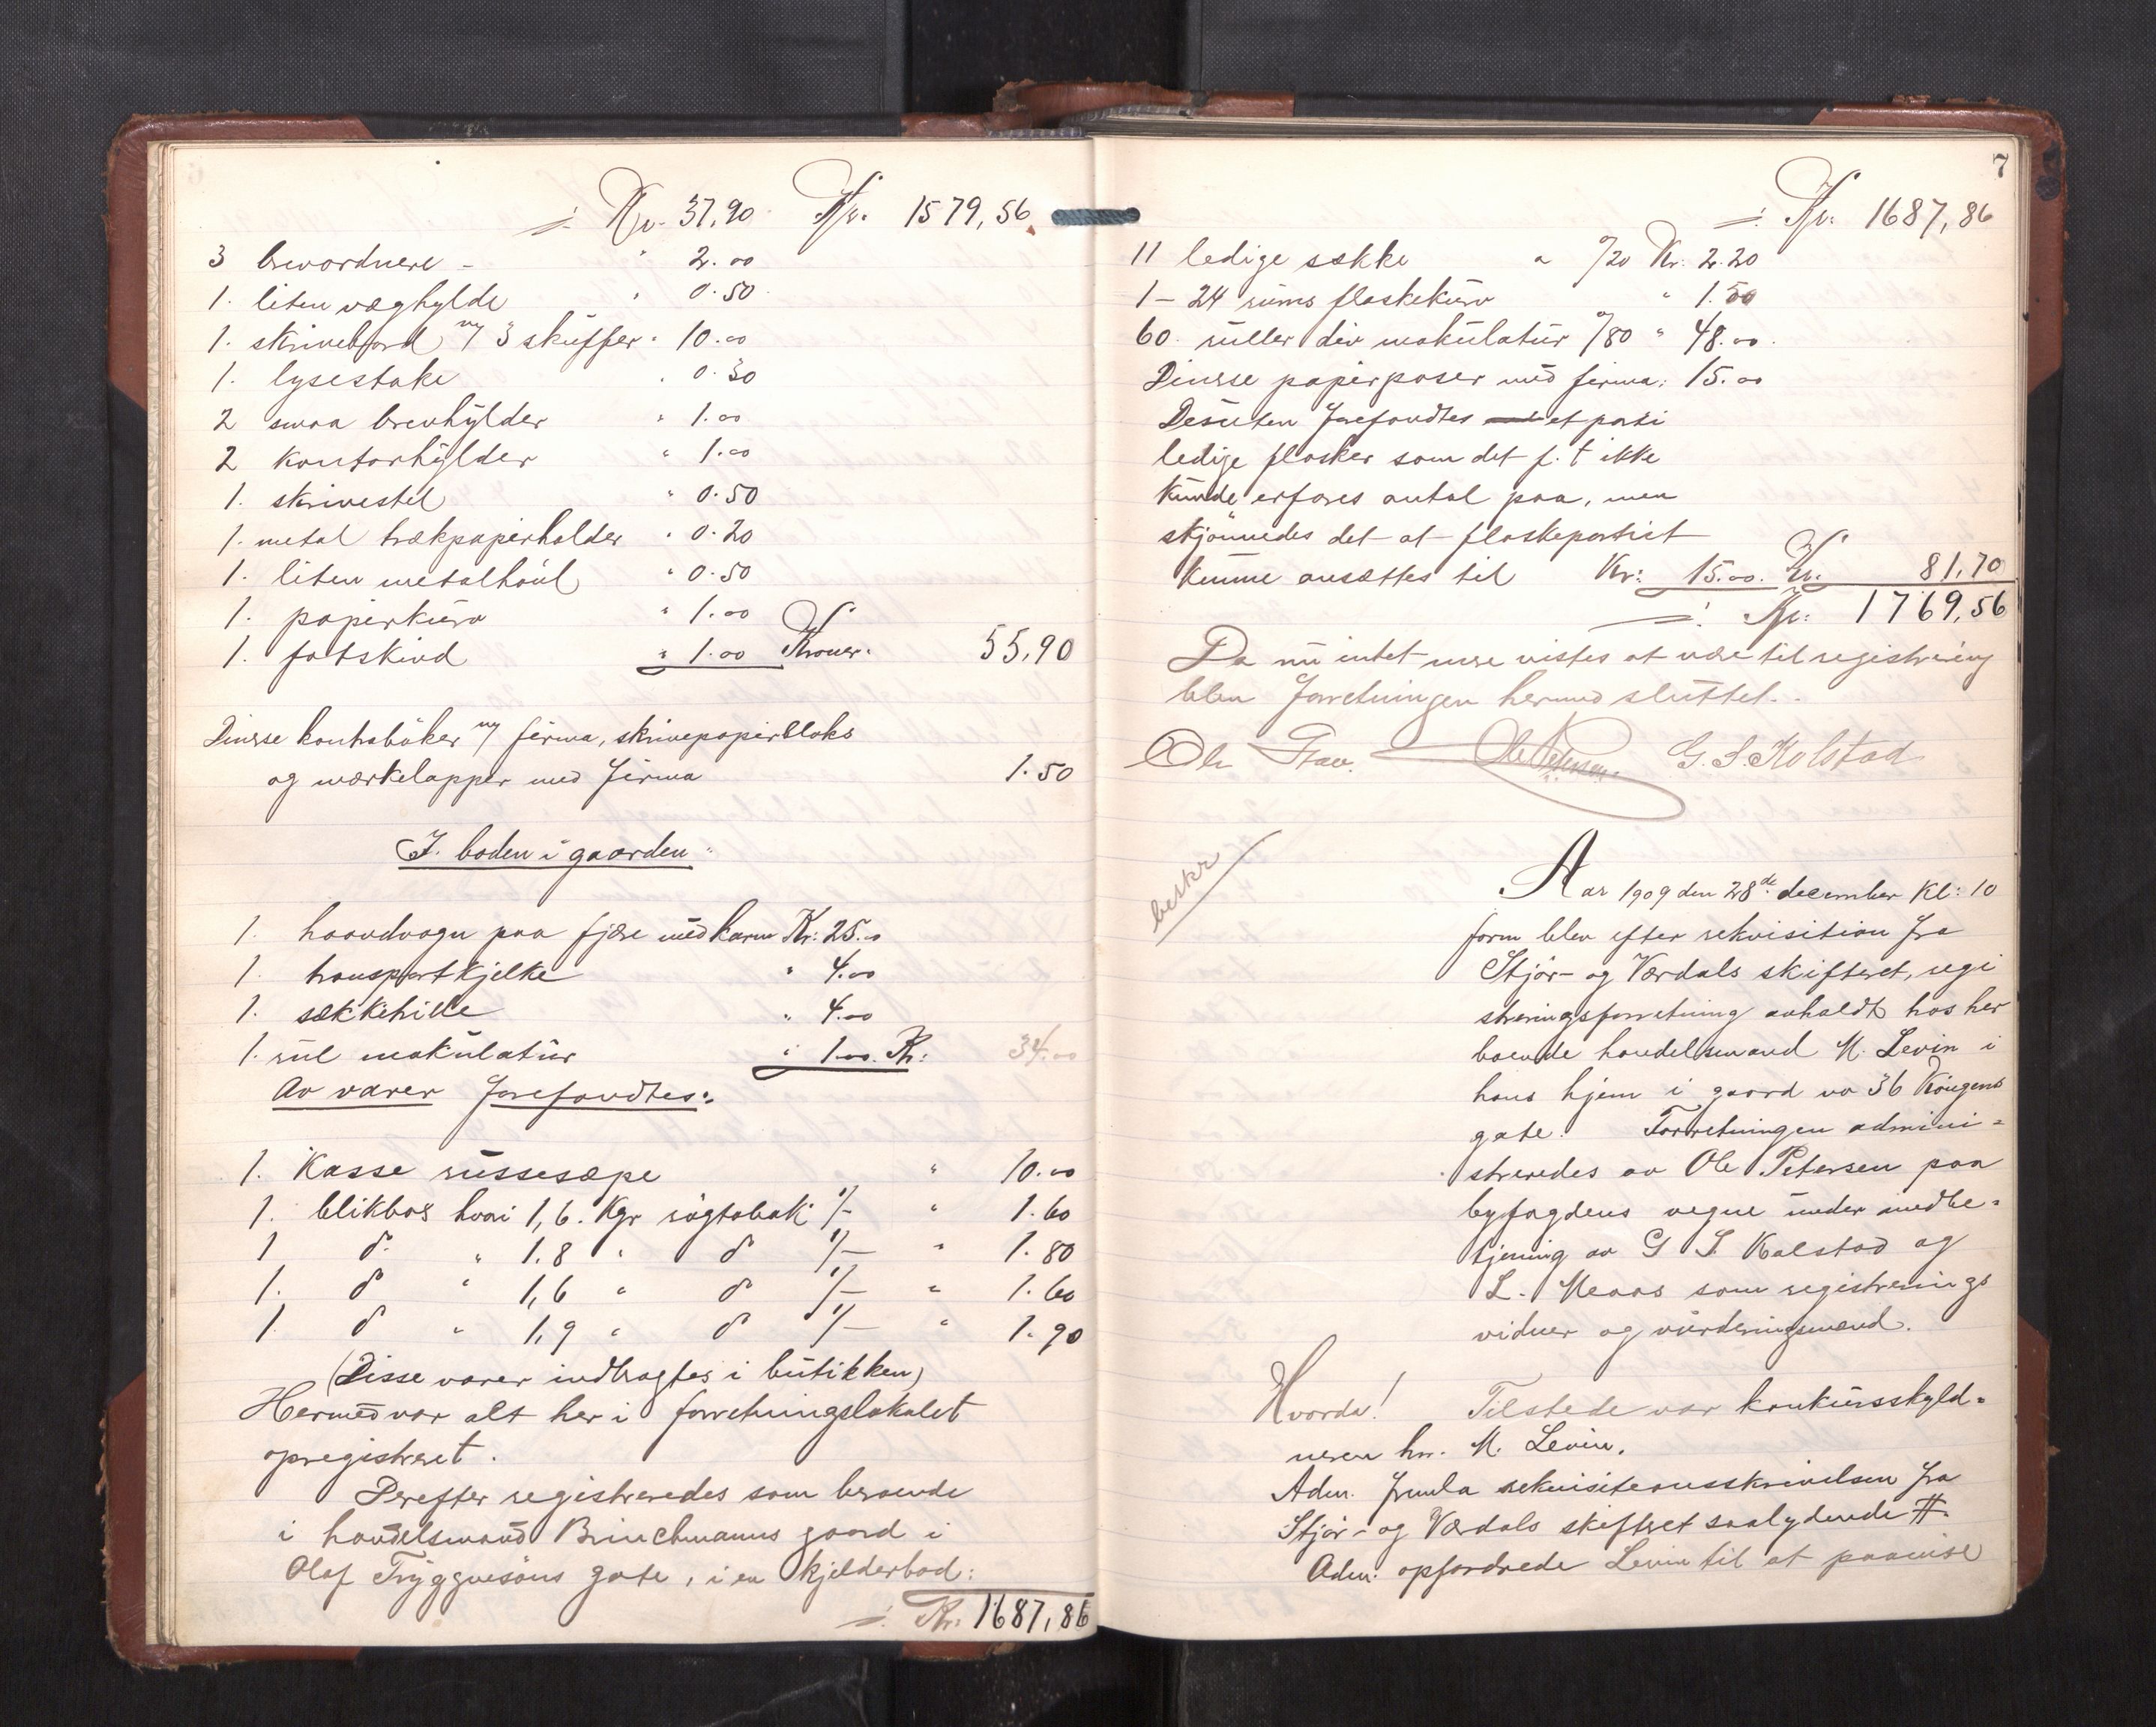 Kr. 37,90 Kr. 1579,56
3 brevordnere - " 2.00
1. liten væghylde " 0.50
1. skrivebord m/ 3 skuffer " 10.00
1. lysestake " 0.30
2 smaa brevhylder " 1.00
2 kontorhylder " 1.00
1. skrivestel " 0.50
1. metal trækpapirholder " 0.20
1. liten metalhaul " 0.50
1. papirkurv " 1.00
1. fotskind " 1.00 Kroner. 55,90
Diverse kontrabøker m/ firma, skrivepapirbloks
og mærkelapper med firma 1.50
I. boden i gaarden
1. haandvogn paa fjære med karm Kr: 25.00
1. transportkjelke " 4.00
1. sækketrille " 4.00
1. rul makulatur " 1.00. Kr: 34.00
Av varer forefandtes:
1. Kasse russesæpe " 10.00
1. blikbox hvori 1,6. Kgr røgtobak 1/- " 1.60
1 do " 1.8 " do 1/- " 1.80
1. do " 1,6 " do 1/- " 1.60
1 do " 1,9 " do 1/- " 1.90
(Disse varer indbragtes i butikken)
Hermed var alt her i forretningslokalet
opregistreret.
Derefter registreredes som beroende
i handelsmand Brinchmanns gaard i
Olaf Tryggvesøns gate, i en kjelderbod:
Kr. 1687,86
7
Kr. 1687,86
11 ledige sække a 0/20 Kr. 2.20
1 - 24 rums flaskekurv " 1.50
60. ruller div makulatur 0/80 " 48.00
Diverse papirposer med firma: 15.00
Desuten forefandtes et parti
ledige flasker som det f. t ikke
kunde erfares antal paa, men
skjønnedes det at flaskepartiet
kunne ansættes til Kr: 15.00. Kr. 81,70
Kr. 1769,56
Da nu intet mere vistes at være til registrering
blev forretningen hermed sluttet.
Ole Petersen G. S. Kolstad
beskr
Aar 1909 den 28de december Kl: 10
form blev efter rekvisition fra
Stjør- og Værdals skifteret, regi
streringsforretning avholdt hos her
boende handelsmand M. Levin i
hans hjem i gaard no 36 Kongens
gate. Forretningen admini=
streredes av Ole Petersen paa
byfogdens vegne under medbe=
tjening av G S. Kolstad og
L. Moxnes som registrerings
vidner og vurderingsmænd.
Hvorda! Tilstede var konkursskyld=
neren hr. M. Levin.
Adm. fremla rekvisitionsskrivelsen fra
Stjør- og Værdals skifteret saalydende #.
Adm. opfordrede Levin til at paavise